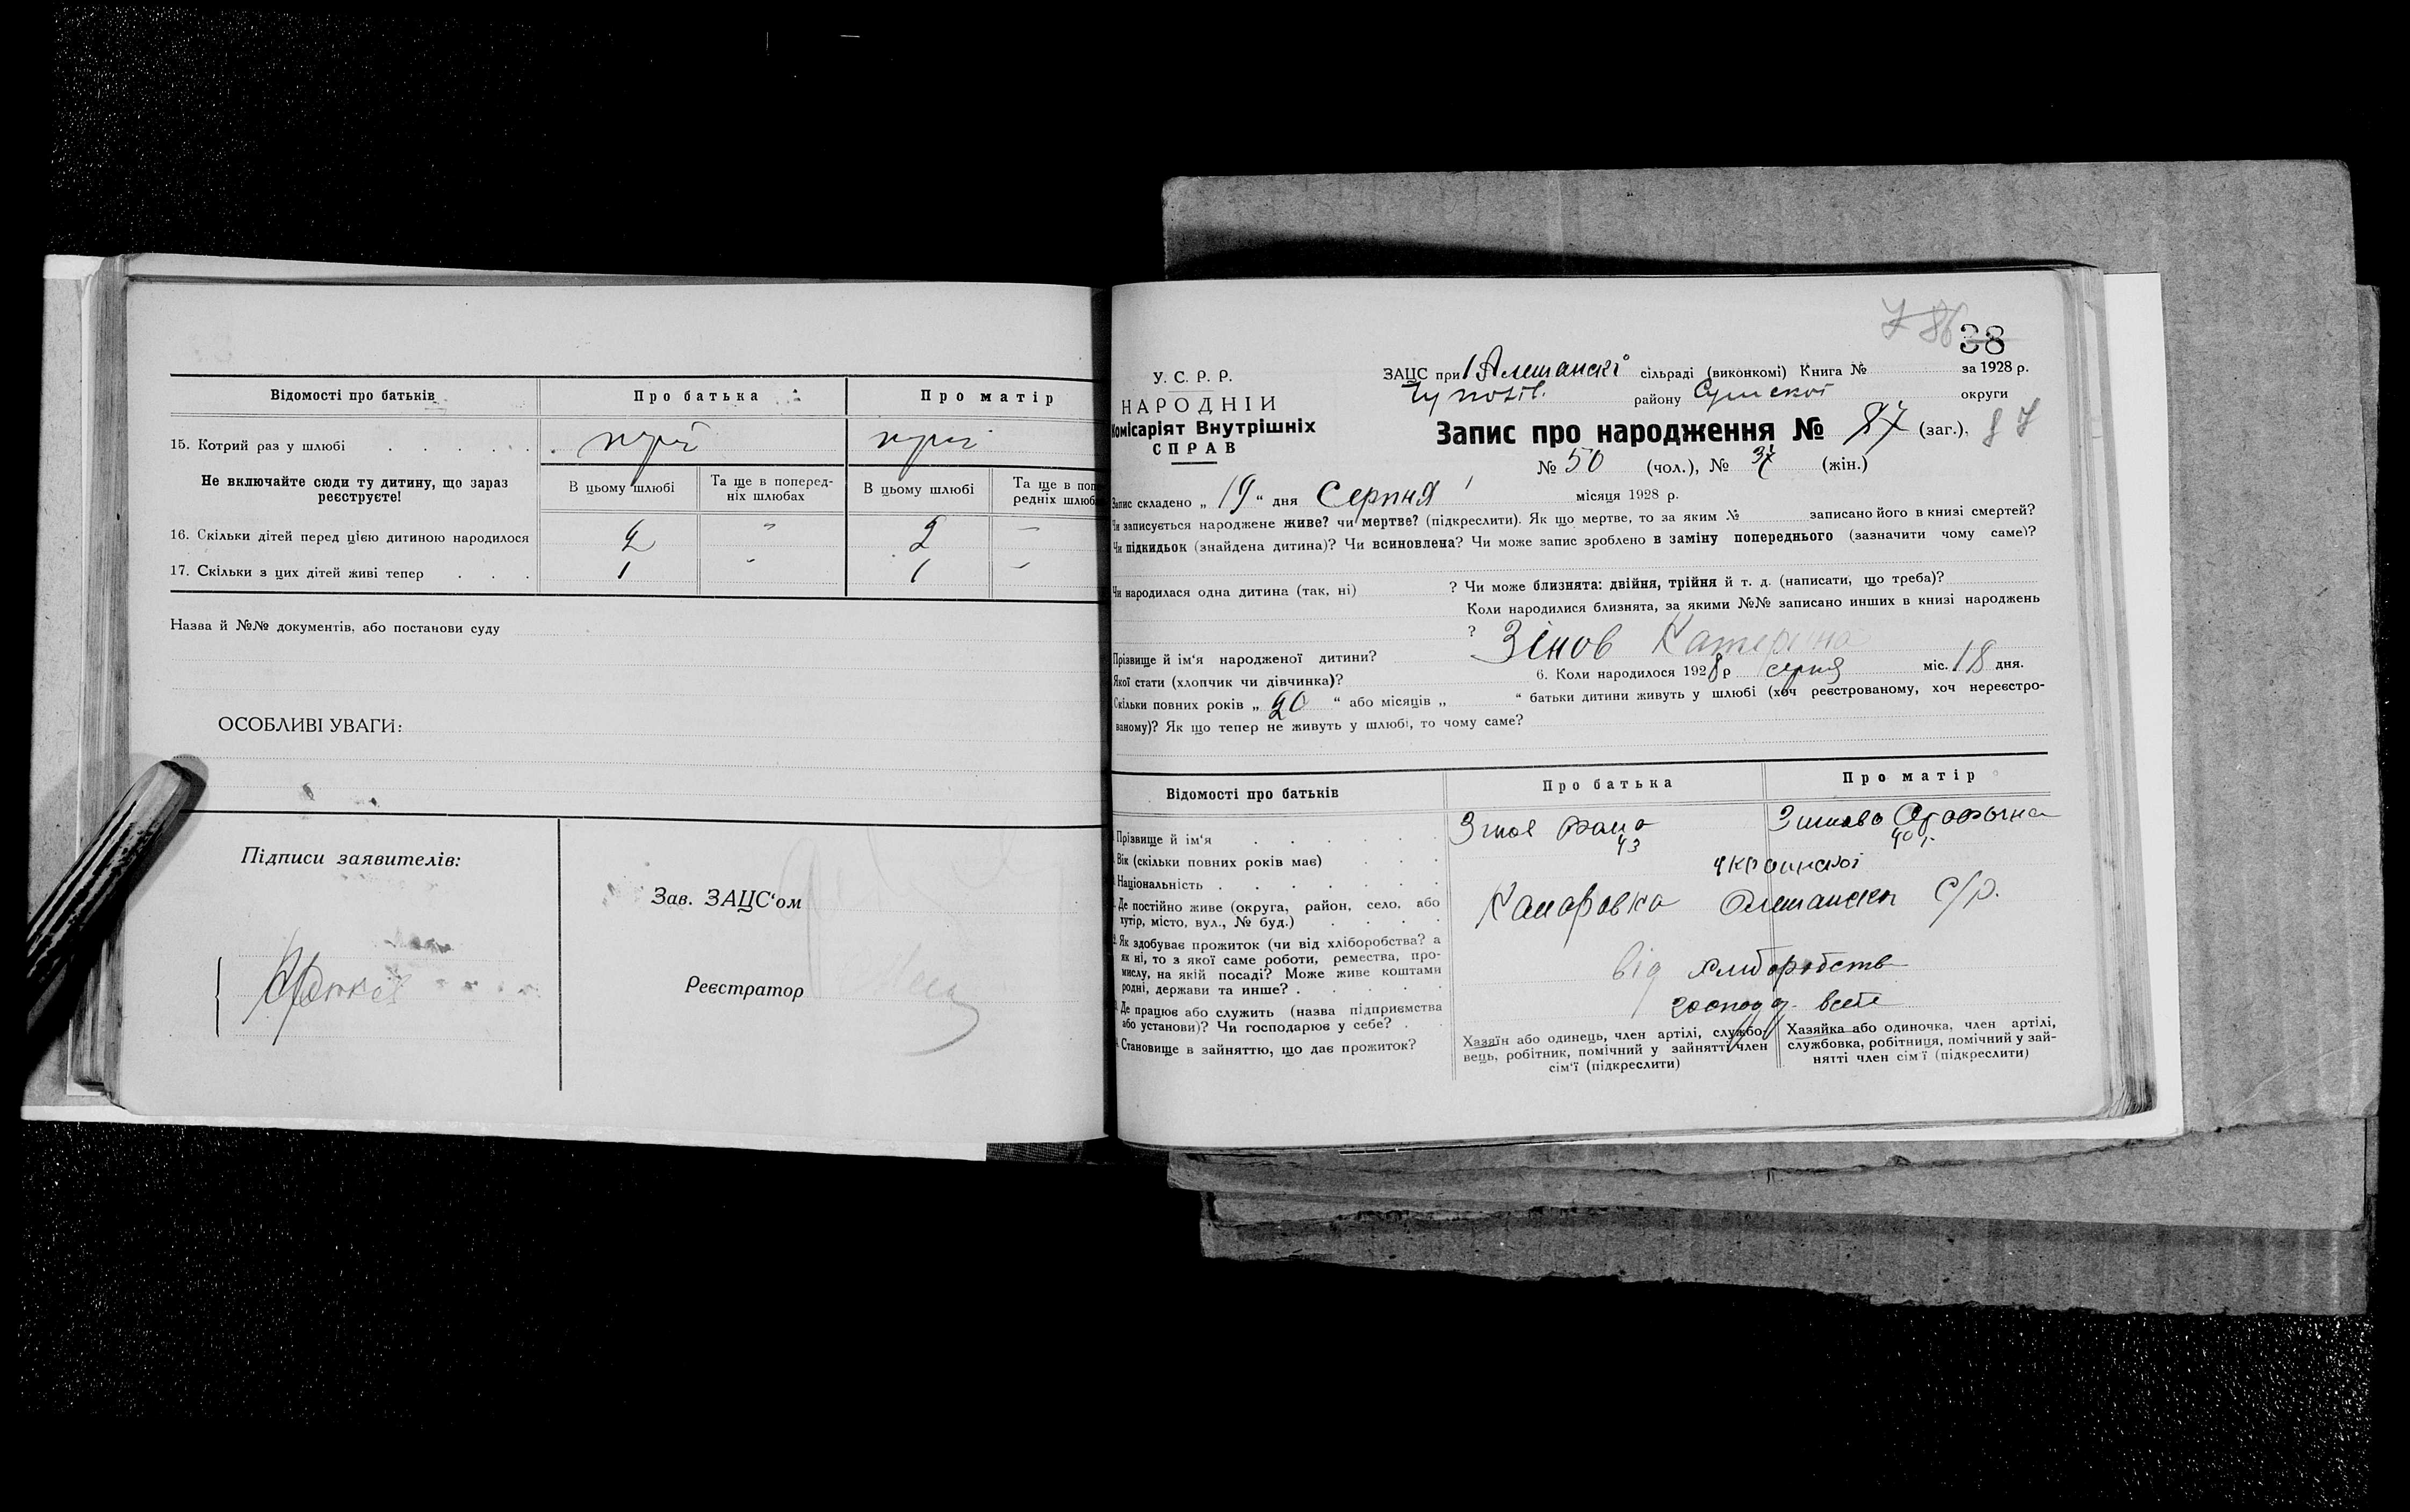 Відомості про батьків
Про батька
Про матір
15. Котрий раз у шлюбі
Не включайте сюди ту дитину, що зараз
реєструєте!
В цьому шлюбі
Та ще в поперед-
ніх шлюбах
В цьому шлюбі
Та ще в поп
редніх шлюб
16. Скільки дітей перед цією дитиною народилося 2 " 2 –
17. Скільки з цих дітей живі тепер 1 - 1 –
Назва й №№ документів, або постанови суду
ОСОБЛИВІ УВАГИ:
Підписи заявителів:
Зав. ЗАЦС'ом
Реєстратор
86
38
У. С. Р. Р.
НАРОДНІЙ
Комісаріят Внутрішніх
СПРАВ
ЗАЦС при сільраді (виконкомі) Книга № за 1928 р.
району Сумської округи
Запис про народження № 87 (заг.), 87
№ 50 (чол.), № 37 (жін.)
Запис складено „ 19 “ дня Серпня місяця 1928 р.
Чи записується народжене живе? чи мертве? (підкреслити). Як що мертве, то за яким № записано його в книзі смертей?
Чи підкидьок (знайдена дитина)? Чи всиновлена? Чи може запис зроблено в заміну попереднього (зазначити чому саме)?
Чи народилася одна дитина (так, ні) ? Чи може близнята: двійня, трійня й т. д. (написати, що треба)?
Коли народилися близнята, за якими №№ записано инших в книзі народжень
?
Прізвище й ім'я народженої дитини? Зінов Катерина
Якої стати (хлопчик чи дівчинка)? 6. Коли народилося 1928 р серпня міс. 18 дня.
Скільки повних років „ 20 “ або місяців „ “ батьки дитини живуть у шлюбі (хоч реєстрованому, хоч нереєстро-
ваному)? Як що тепер не живуть у шлюбі, то чому саме?
Відомості про батьків
Про батька
Про матір
Прізвище й ім'я
Вік (скільки повних років має) 43 40
Національність
Де постійно живе (округа, район, село, або
хутір, місто, вул., № буд.) с/р.
Як здобуває прожиток (чи від хліборобства? а
як ні, то з якої саме роботи, ремества, про-
мислу, на якій посаді? Може живе коштами
родні, держави та инше? .
від хліборобств
Де працює або служить (назва підприємства
або установи)? Чи господарює у себе? .
Становище в зайняттю, що дає прожиток?
Хазяїн або одинець, член артілі, службо-
вець, робітник, помічний у зайнятті член
сім'ї (підкреслити)
Хазяйка або одиночка, член артілі,
службовка, робітниця, помічний у зай-
нятті член сім'ї (підкреслити)